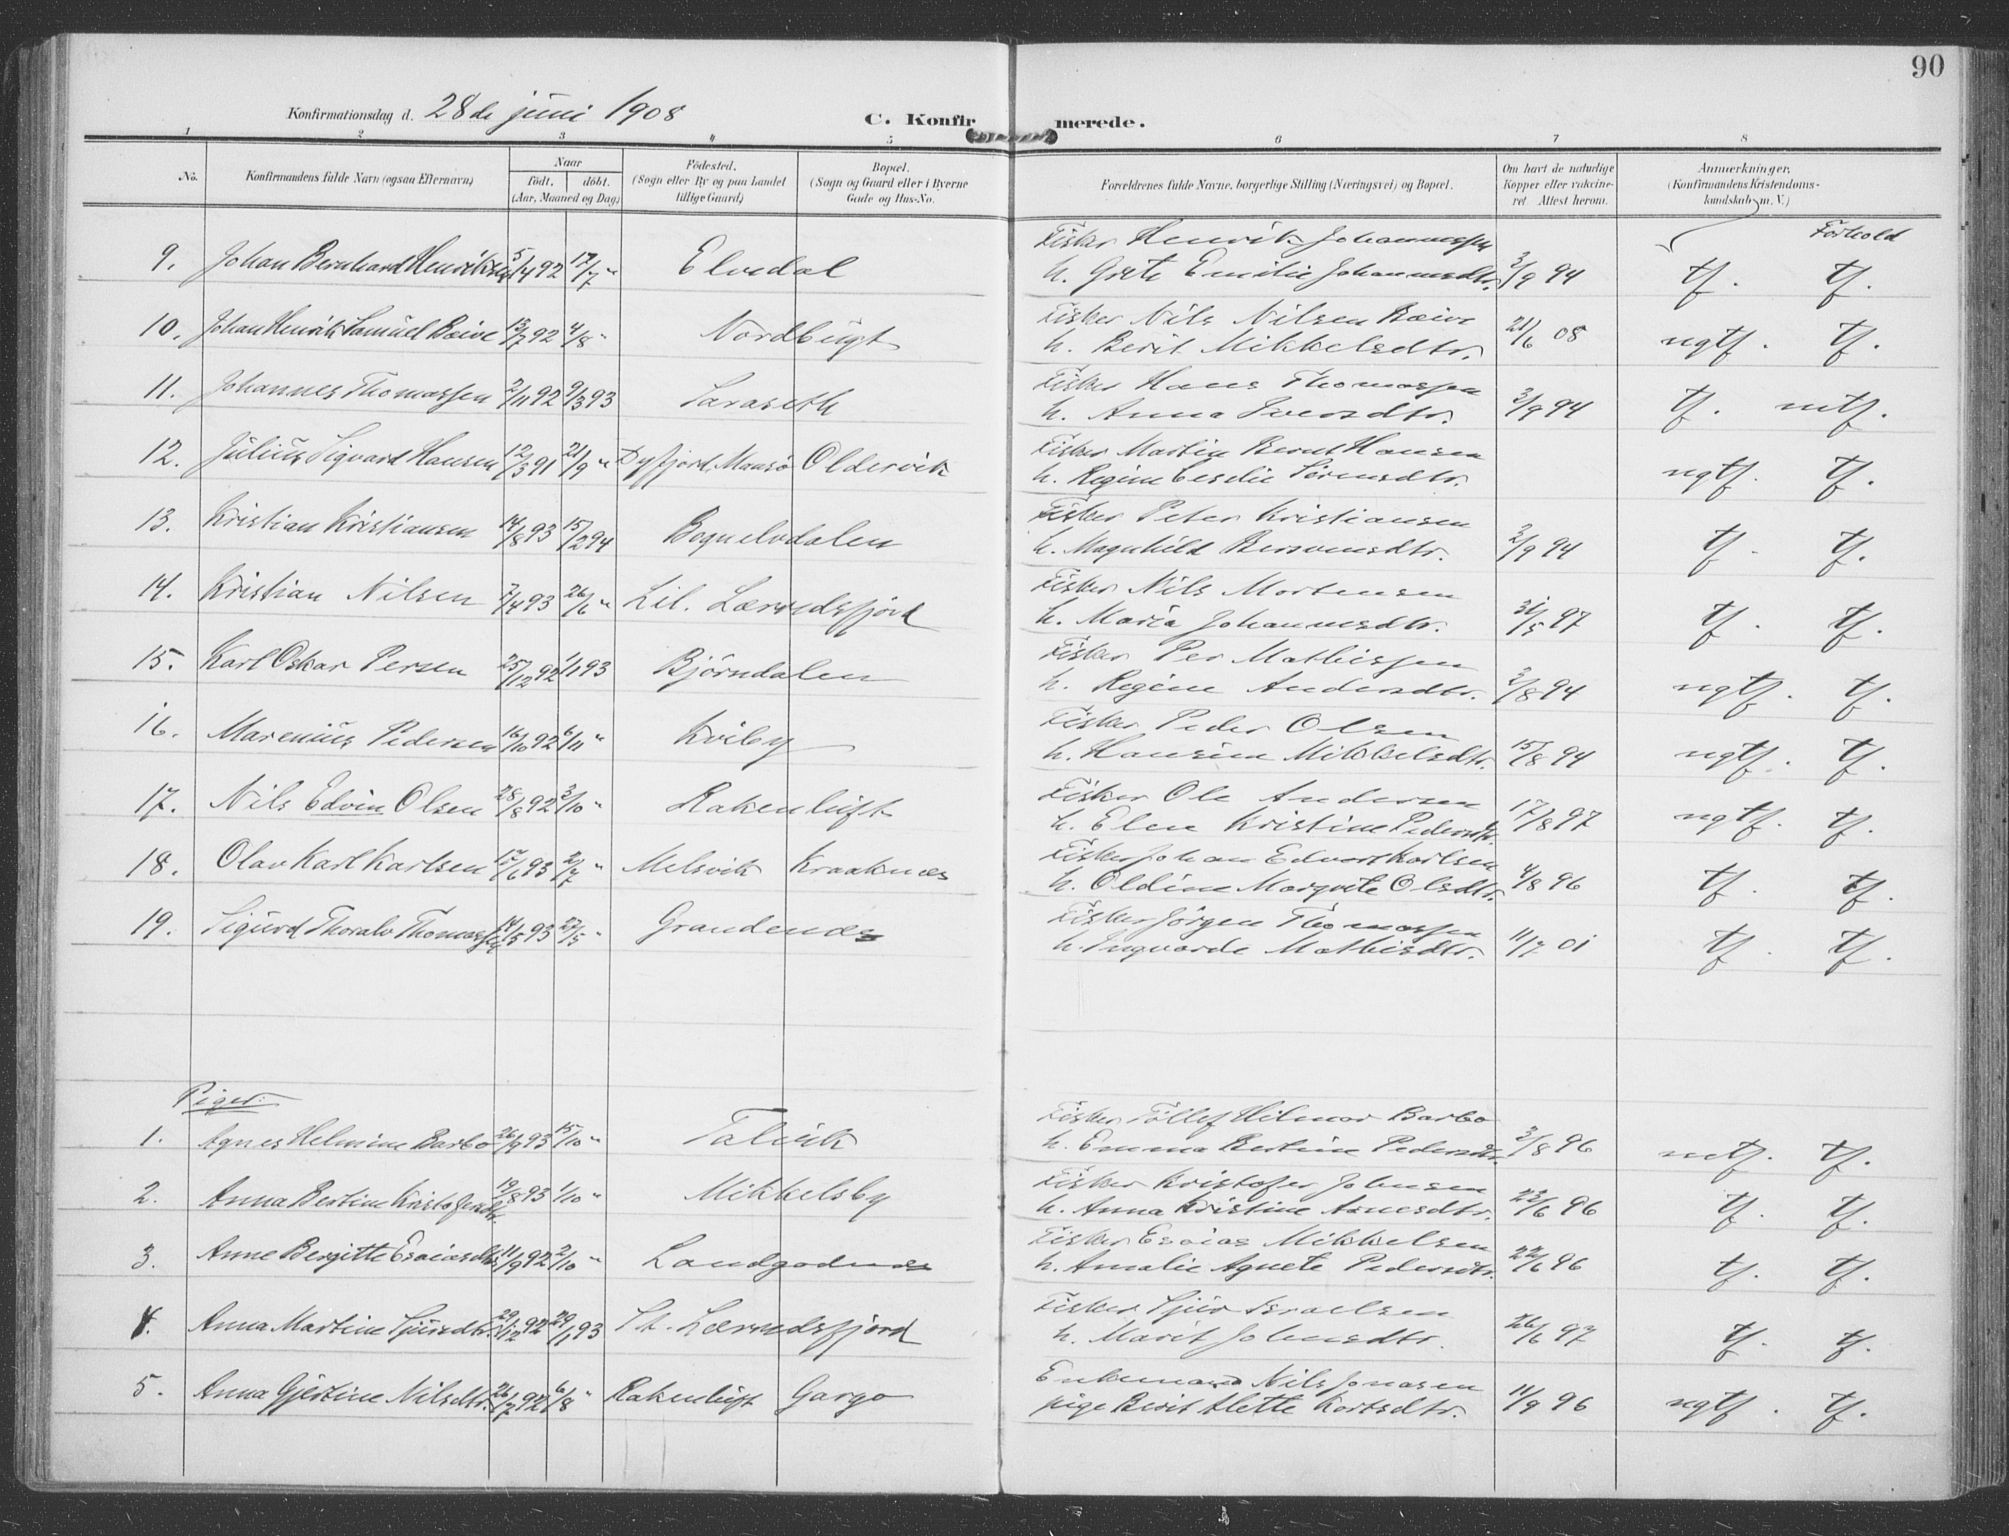 90
Konfirmationsdag d. 28de juni 1908
C. Konfirmerede.
1 2 3 4 5 6 7 8
No.
Konfirmandens fulde Navn (ogsaa Efternavn)
Naar
født. døbt.
(Aar, Maaned og Dag)
Fødested.
(Sogn eller By og paa Landet
tillige Gaard)
Bopæl.
(Sogn og Gaard eller i Byerne
Gade og Hus-No.
Forældrenes fulde Navne, borgerlige Stilling (Næringsvei) og Bopæl.
Om havt de naturlige
Kopper eller vakcine-
ret Attest herom.
Anmærkninger.
(Konfirmandens Kristendoms-
kundskab m. V.)
Forhold
9. Johan Bernhard Henriksen 5/4 92 17/7 " Elvedal Fisker Henrik Johannessen
h. Grete Emilie Johannesdtr. 3/9 94 tf. tf.
10. Johan Henrik Samuel Bæivi 13/7 92 4/8 " Nordbugt Fisker Nils Nilsen Bæivi
h. Berit Mikkelsdtr. 21/6 08 ngtf. tf.
11. Johannes Thomassen 2/11 92 9/3 93 Saraseth Fisker Hans Thomassen
h. Anna Iversdtr. 3/9 94 tf. mtf.
12. Julius Sigvard Hansen 12/3 91 21/9 " Dyfjord, Maasø Oldervik Fisker Martin Bernt Hansen
h. Regine Ceselie Sørensdtr. ngtf. tf.
13. Kristian Kristiansen 14/8 93 15/2 94 Bognelvdalen Fisker Peter Kristiansen
h. Magnhild Bersvensdtr. 3/9 94 tf. tf.
14. Kristian Nilsen 7/4 93 26/6 " Lil. Lærredsfjord Fisker Nils Mortensen
h. Maria Johannesdtr. 31/5 97 tf. tf.
15. Karl Oskar Persen 25/12 92 1/1 93 Bjørndalen Fisker Per Mathissen
h. Regine Andersdtr. 3/8 94 ngtf. tf.
16. Marenius Pedersen 16/10 92 6/11 " Kviby Fisker Peder Olsen
h. Hansine Mikkelsdtr. 15/8 94 ngtf. tf.
17. Nils Edvin Olsen 28/8 92 2/10 " Rakenluft Fisker Ole Andersen
h. Elen Kristine Pedersdtr. 17/8 97 ngtf. tf.
18. Olav Karl Karlsen 17/6 93 2/7 " Melsvik Kraaknæs Fisker Johan Edvart Karlsen
h. Oldine Margrete Olsdtr. 4/8 96 tf. tf.
19. Sigurd Thoralv Thomassen 14/5 93 27/5 " Grandenæs Fisker Jørgen Thomassen
h. Ingvarda Mathisdtr. 11/7 01 tf. tf.
Piger:
1. Agnes Helmine Barbo 26/9 93 15/10 " Talvik Fisker Tollef Hilmar Barbo
h. Emma Bertine Pedersdtr. 3/8 96 mtf. tf.
2. Anna Bertine Kristofersdtr. 19/8 93 1/10 " Mikkelsby Fisker Kristofer Johnsen
h. Anna Kristine Arnesdtr. 22/6 96 tf. tf.
3. Anne Bergitte Esaiasdtr. 11/9 92 2/10 " Landgodnæs Fisker Esaias Mikkelsen
h. Amalie Agnete Pedersdtr. 22/6 96 tf. tf.
4. Anna Martine Sjursdtr. 29/12 92 29/1 93 St. Lærredsfjord Fisker Sjur Israelsen
h. Marit Johnsdtr. 26/6 97 tf. tf.
5. Anna Gjertine Nilsdtr. 26/7 92 6/8 " Rakenluft Gargo Enkemand Nils Jonasen
pige Berit Alette Kortsdtr. 11/9 96 ngtf. tf.